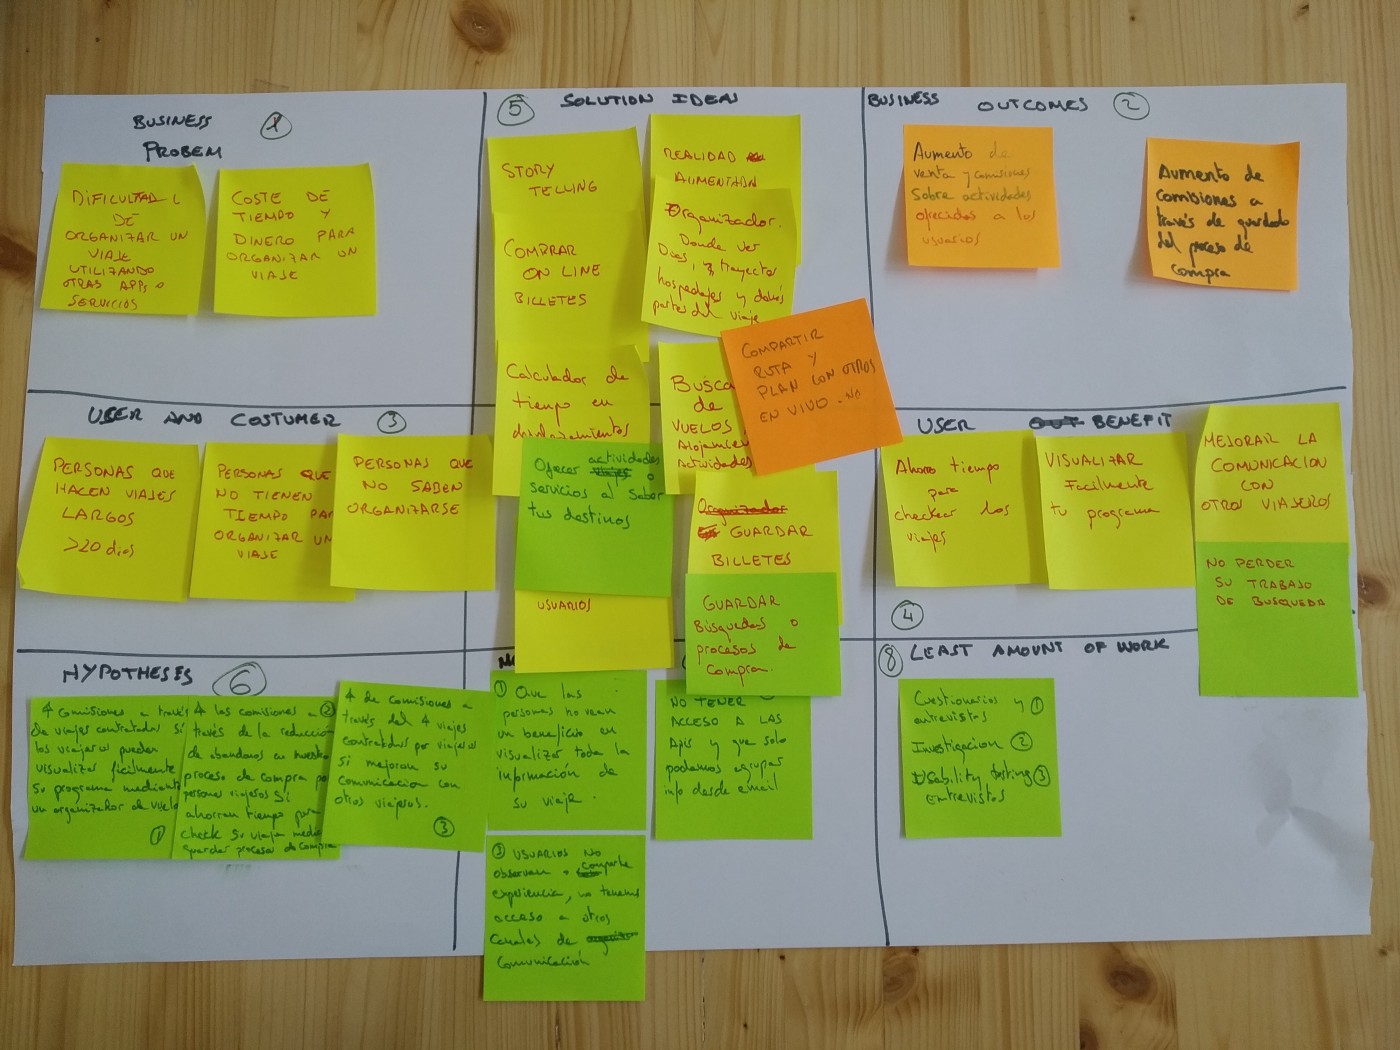 BUSINESS 1
PROBEM
DIFICULTAD
DE
ORGANIZAR UN
VIAJE
UTILIZANDO
OTRAS APPS O
SERVICIOS
COSTE DE
TIEMPO Y
DINERO PARA
ORGANIZAR UN
VIAJE
5 SOLUTION IDEAS
STORY
TELLING
COMPRAR
ON LINE
BILLETES
REALIDAD
AUMENTADA
Organizador.
Donde ver
Dias, y trayectos
hospedajes y demás
partes del viaje
COMPARTIR
RUTA Y
PLAN CON OTROS
EN VIVO - NO
Calculador de
tiempo en
desplazamientos
BUSCA
de
VUELOS
Alojamien
Actividades
Ofrecer actividades
viajes o
servicios al saber
tus destinos
USUARIOS
Organizador
GUARDAR
BILLETES
GUARDAR
Búsquedas o
procesos de
Compra.
BUSINESS OUTCOMES 2
Aumento de
venta y comisiones
Sobre actividades
ofrecidos a los
usuarios
Aumento de
comisiones a
través de guardado
del proceso de
compra
USER AND COSTUMER 3
PERSONAS QUE
HACEN VIAJES
LARGOS
>20 dias
PERSONAS QUE
NO TIENEN
TIEMPO PAR
ORGANIZAR UN
VIAJE
PERSONAS QUE
NO SABEN
ORGANIZARSE
USER OUT BENEFIT
4
Ahorro tiempo
para
checkear los
viajes
VISUALIZAR
Facilmente
tu programa
MEJORAR LA
COMUNICACION
CON
OTROS VIAJEROS
NO PERDER
SU TRABAJO
DE BUSQUEDA
HYPOTHESES 6
↑ comisiones a través
de viajes contratados si
los viajeros pueden
visualizar fácilmente
su programa mediante
un organizador de vuelo
1
↑ las comisiones a 2
través de la reducción
de abandonos en nuestro
proceso de compra po
personas viajeros si
ahorran tiempo para
check su viaje media
guardar procesos de compra
↑ de comisiones a
través del ↑ viajes
contratados por viajeros
si mejoran su
comunicacion con
otros viajeros.
3
1 Que las
personas no vean
un beneficio en
visualizar toda la
información de
su viaje.
NO TENER
ACCESO A LAS
Apis y que solo
podamos agrupar
info desde email
3 USUARIOS NO
observan o comparte
experiencia, no tenemos
acceso a otros
canales de
comunicación
8 LEAST AMOUNT OF WORK
Cuestionarios y 1
entrevistas
Investigacion 2
Usability testing 3
Entrevistas